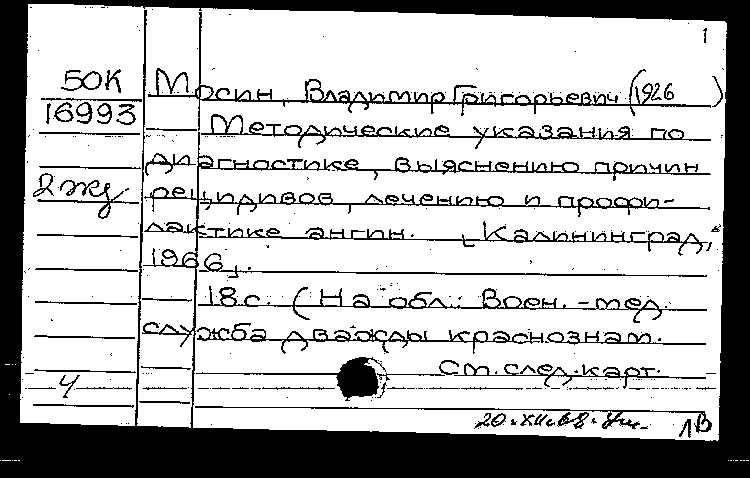 1
50К
16993
2 жд
Мосин, Владимир Григорьевич (1926 )
Методические указания по
диагностике, выяснению причин
рецидивов, лечению и профи-
лактике ангин. [Калининград,
1966].
18с. (На обл.: Воен.-мед.
служба дважды краснознам.
См.след.карт.
4
20.XII.68.
ЛВ